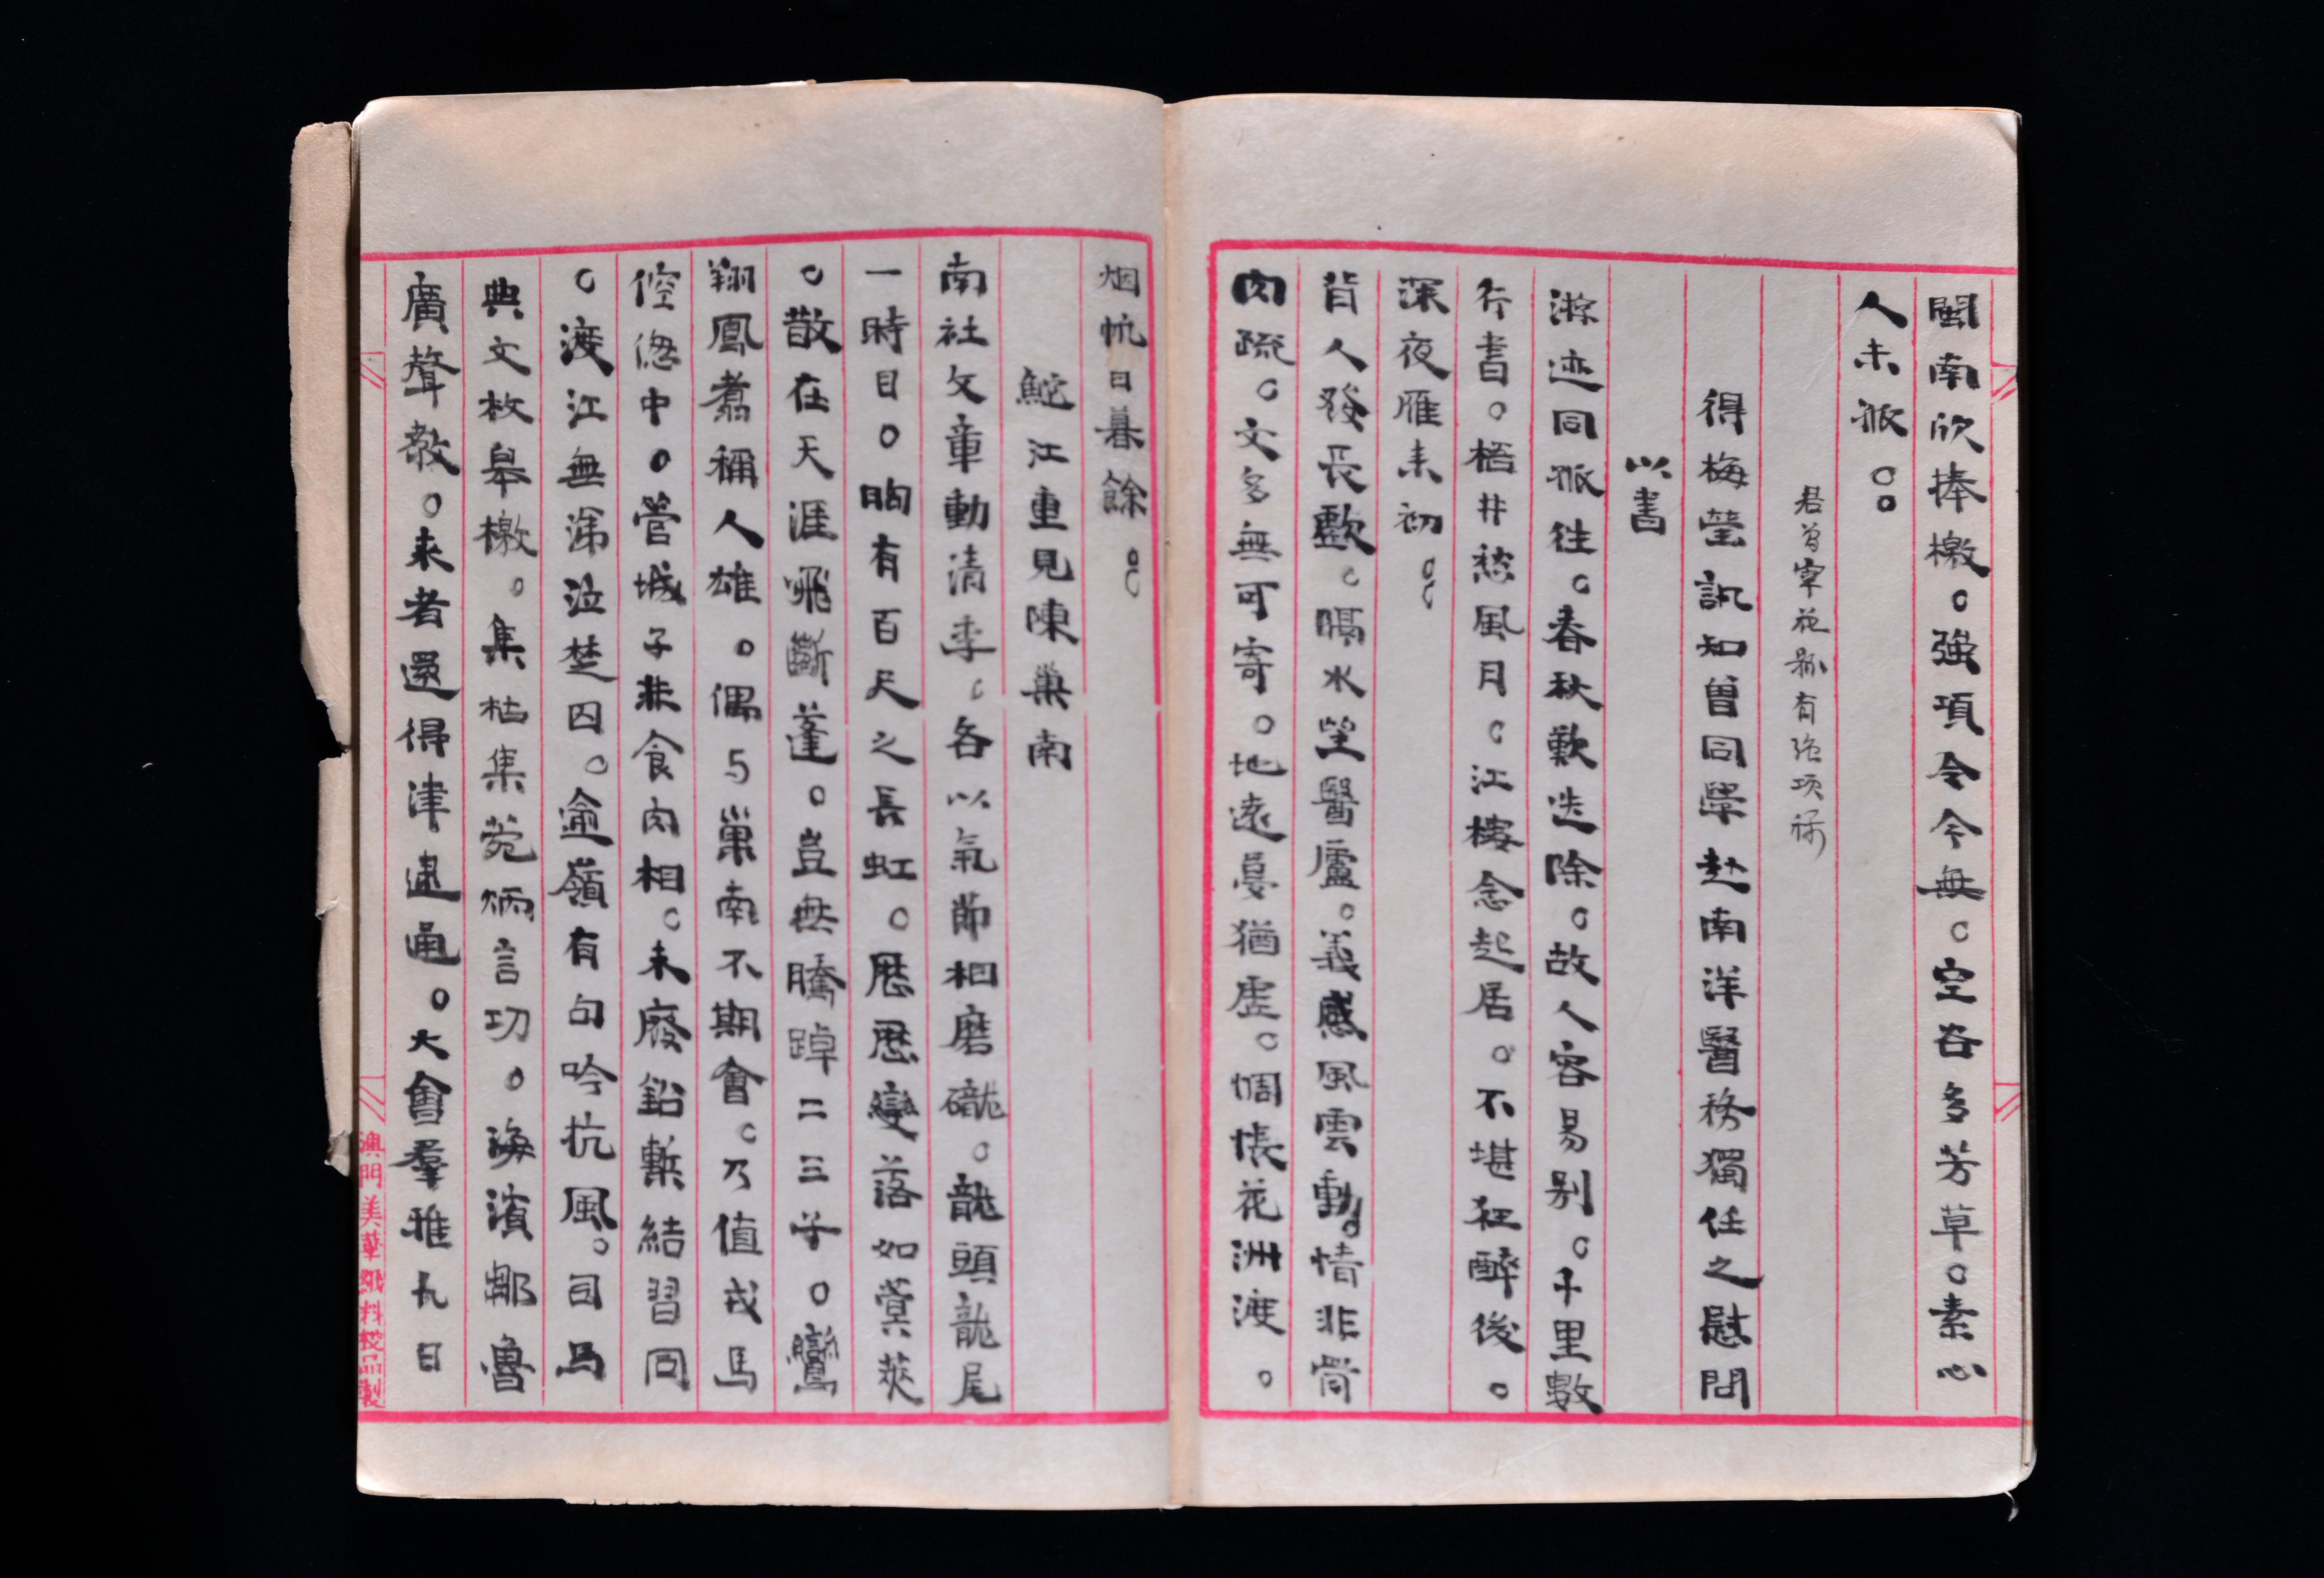 閩南欣捧檄。強項令今無。空谷多芳草。素心
人未孤。。
君曾宰花縣有強项称
得梅瑩訊知曾同學赴南洋醫務獨任之慰問
以書
游迹同孤往。春秋歎迭除。故人容易别。千里數
行書。梧井愁風月。江樓念起居。不堪狂醉後。
深夜雁来初。。
背人發長歎。隔水望醫廬。義感風雲動。情非骨
肉疏。文多無可寄。地遠夢猶虛。惆悵花洲渡。
烟帆日暮餘。。
鮀江重見陳巢南
南社文章動清季。各以氣節相磨礲。龍頭龍尾
一時目。胸有百尺之長虹。歷歷變落如蓂莢
。散在天涯飛斷蓬。豈無騰踔二三子。鸞
翔鳳翥稱人雄。偶与巢南不期會。乃值戎馬
倥傯中。管城子非食肉相。未廢鉛槧結習同
。渡江無涕泣楚囚。逾嶺有句吟抗風。司馬
典文枚皋檄。集枯集菀炳言功。海濱鄒魯
廣聲教。来者還得津逮通。大會羣雅九日
澳門美華紙料授品製